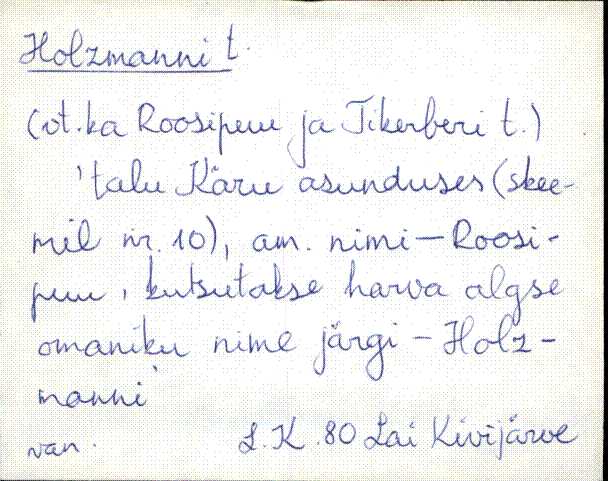 Holzmanni t.
(vt. ka Roosipuu ja Tikerberi t.)
'talu Käru asunduses (skee-
mil nr. 10), am. nimi — Roosi-
puu, kutsutakse harva algse
omaniku nime järgi — Holz-
manni'
van. L. K. 80 Lai Kivijärve